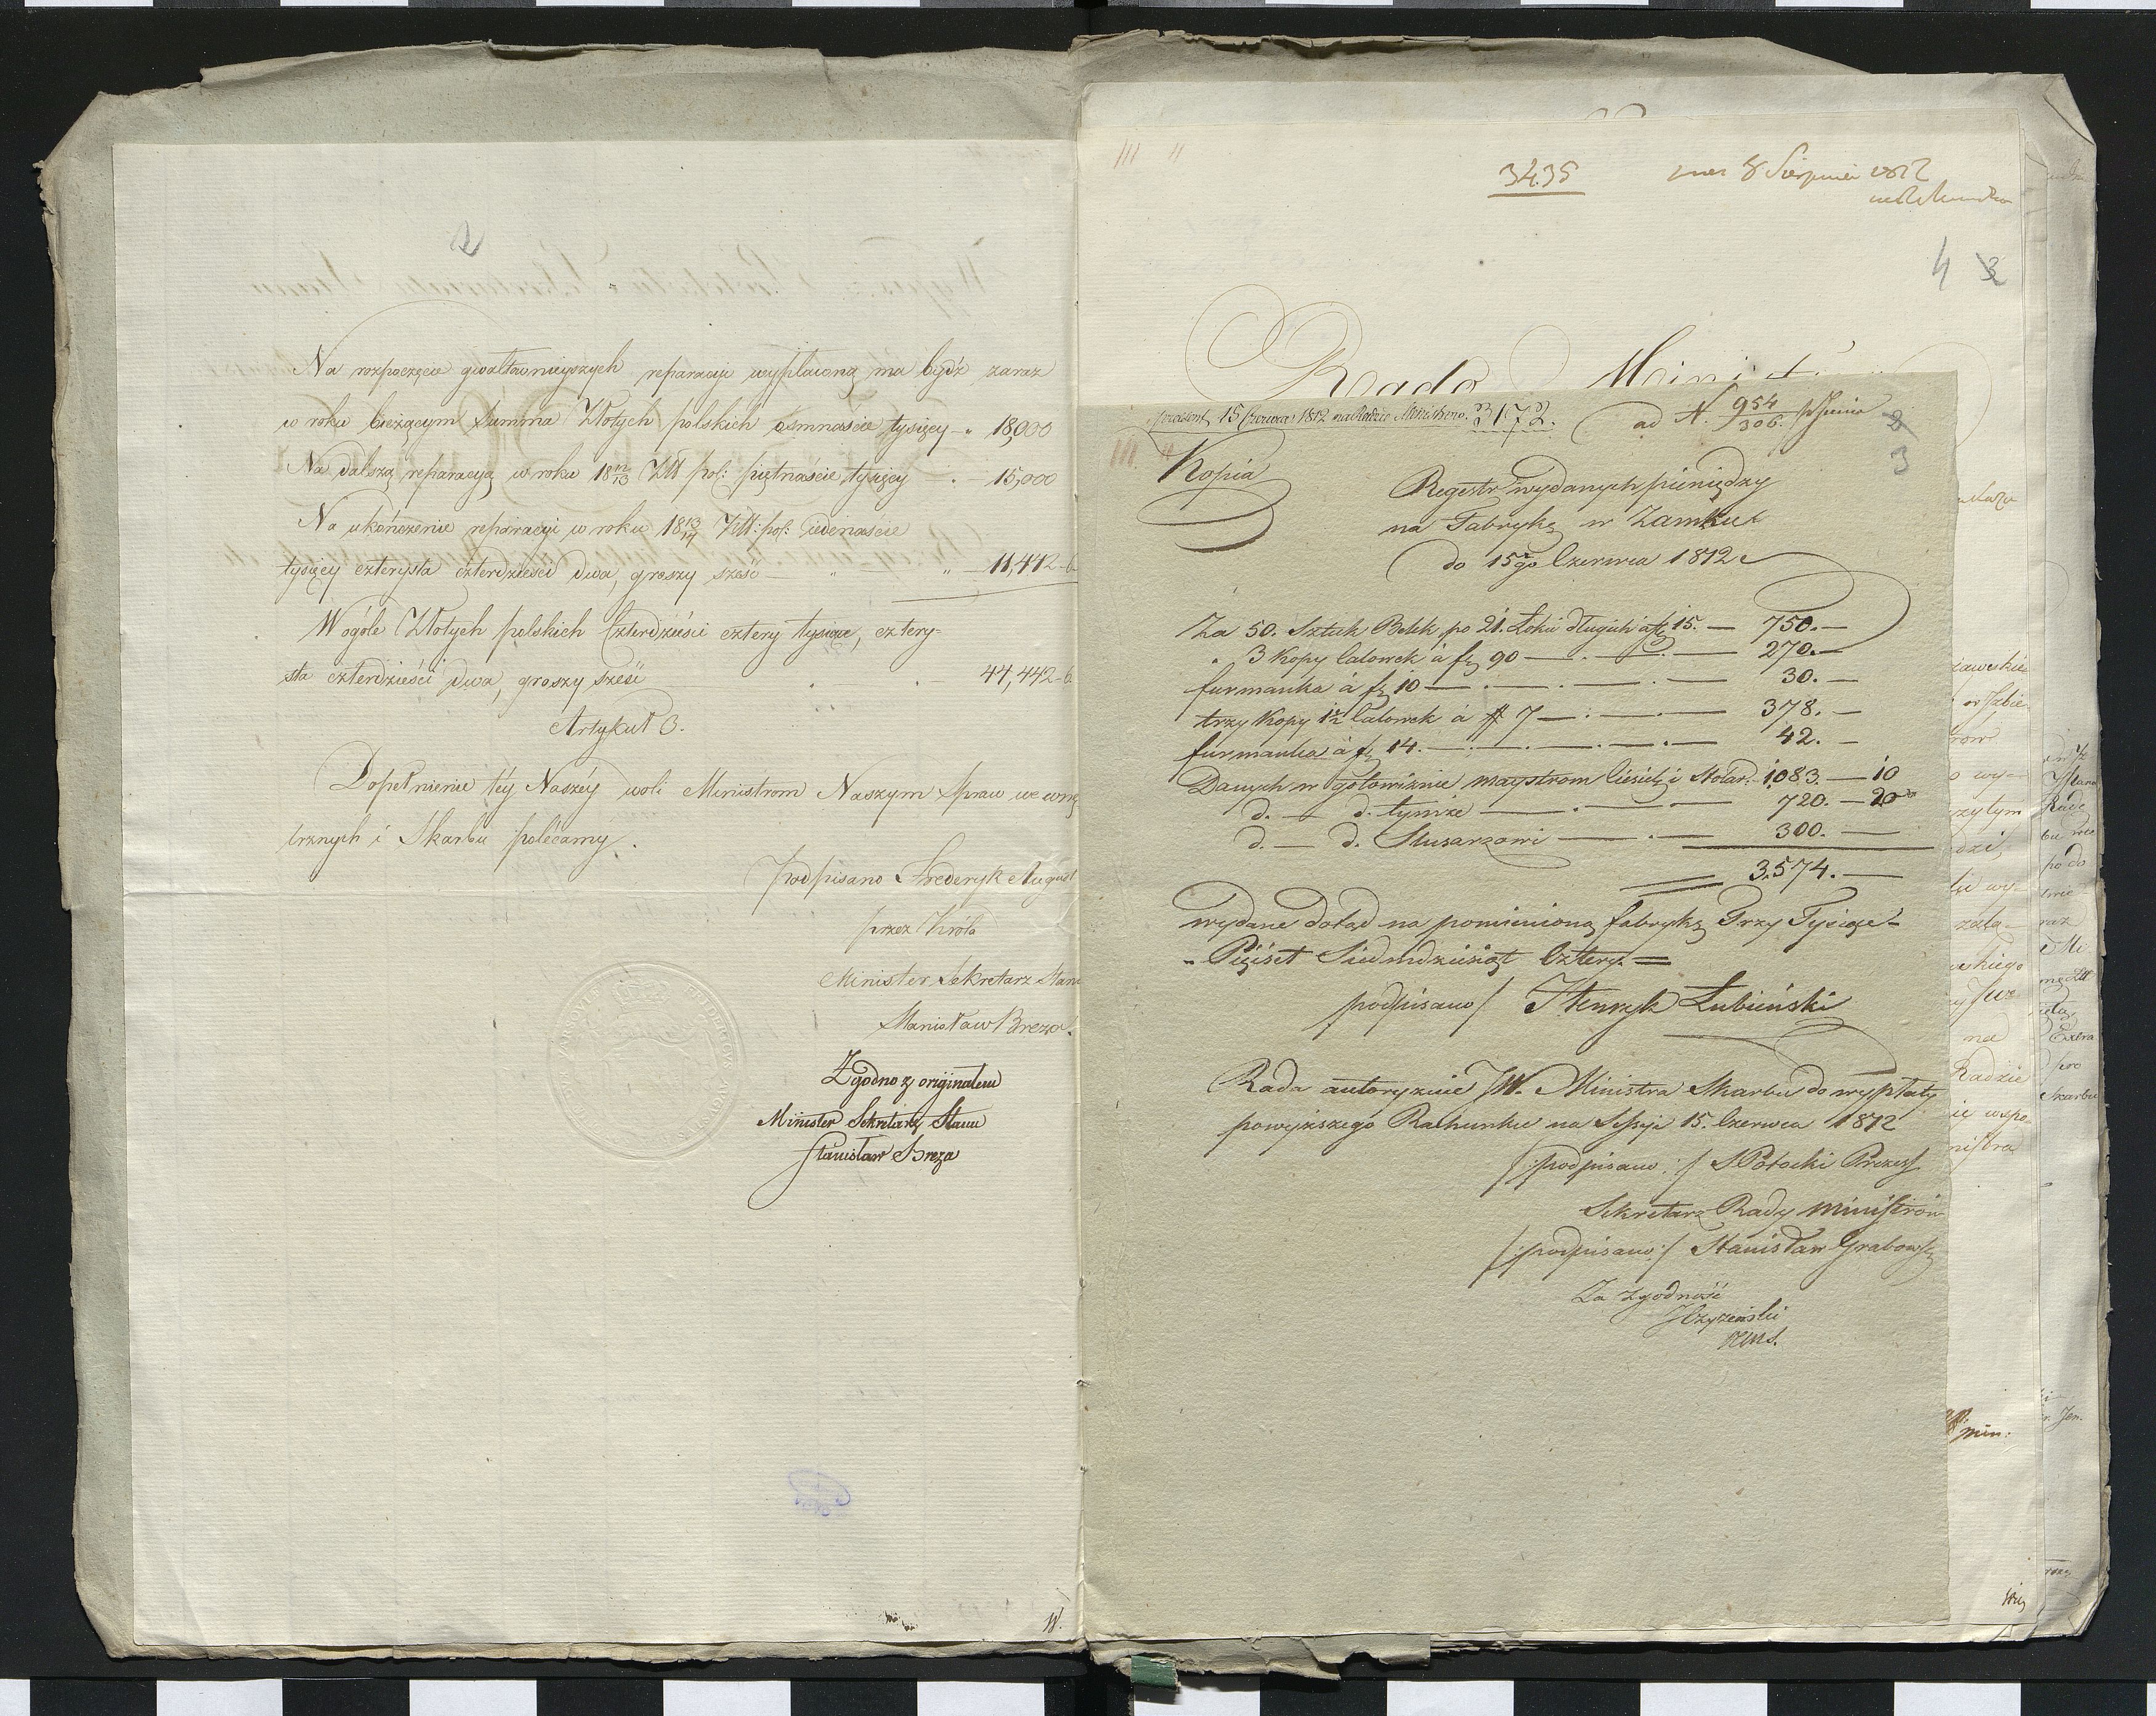 2
Na rozpoczęcie gwałtownieyszych reparacyi wypłaconą ma bydź zaraz
w roku bieżącym Summa Złotych polskich osmnaście tysięcy - „ 18,000
Na dalszą reparacyą w roku 18 12/13 Złł pol: piętnaście tysięcy - 15,000
Na ukończenie reparacyi w roku 18 13/14 Złł: pol: iedenaście
tysięcy czterysta czterdzieści dwa, groszy sześć — „ — „ — 11,442-6
W ogóle Złotych polskich Czterdzieści cztery tysiące, cztery-
sta czterdzieści dwa, groszy sześć . . — 44,442-6
Artykuł 3.
Dopełnienie téy Naszéy woli Ministrom Naszym Spraw wewnę
trznych i Skarbu polécamy.
Podpisano Frederyk August
przez Króla
Minister Sekretarz Stanu
Stanisław Breza.
Zgodno z originałem
Minister Sekretarz Stanu
Stanisław Breza
W.
3435
8 Sierpnia 1812
4 3
Rada Minist
present, 15 Czerwca 1812 na Radzie Ministrów. 3172.
ad N. 954/306.
2
3
Kopia
Regestr wydanych pieniędzy
na Fabrykę w Zamku
do 15go Czerwca 1812
Za 50. Sztuk Belek po 21. Łokci długich à f 15. — 750. —
„ 3 Kopy Calowek à f 90 — . — . — 270. —
furmanka à f 10 — . — . — . — 30. —
trzy Kopy 1½ Calowek à # 7 — . — . — 378. —
furmanka à f 14. — . — . — . — 42. —
Danych w gotowiznie maystrom Ciesielz i Stolar: 1083. — 10
d. — d. tymże — . — . — 720. — 20
d. — d. Slusarzowi — . — 300. —
3.574. —
wydane dotąd na pomienioną fabrykę Trzy Tysiące
Pięiset Siedmdziesiąt Cztery. =
podpisano / Henryk Łubieński
Rada autoryzuie JW. Ministra Skarbu do wypłaty
powyższego Rachunku na Sessyi 15. Czerwca 1812
/:podpisano:/ S Potocki Prezes
Sekretarz Rady Ministrów
/:podpisano:/ Stanisław Grabowski
Za zgodność
min: